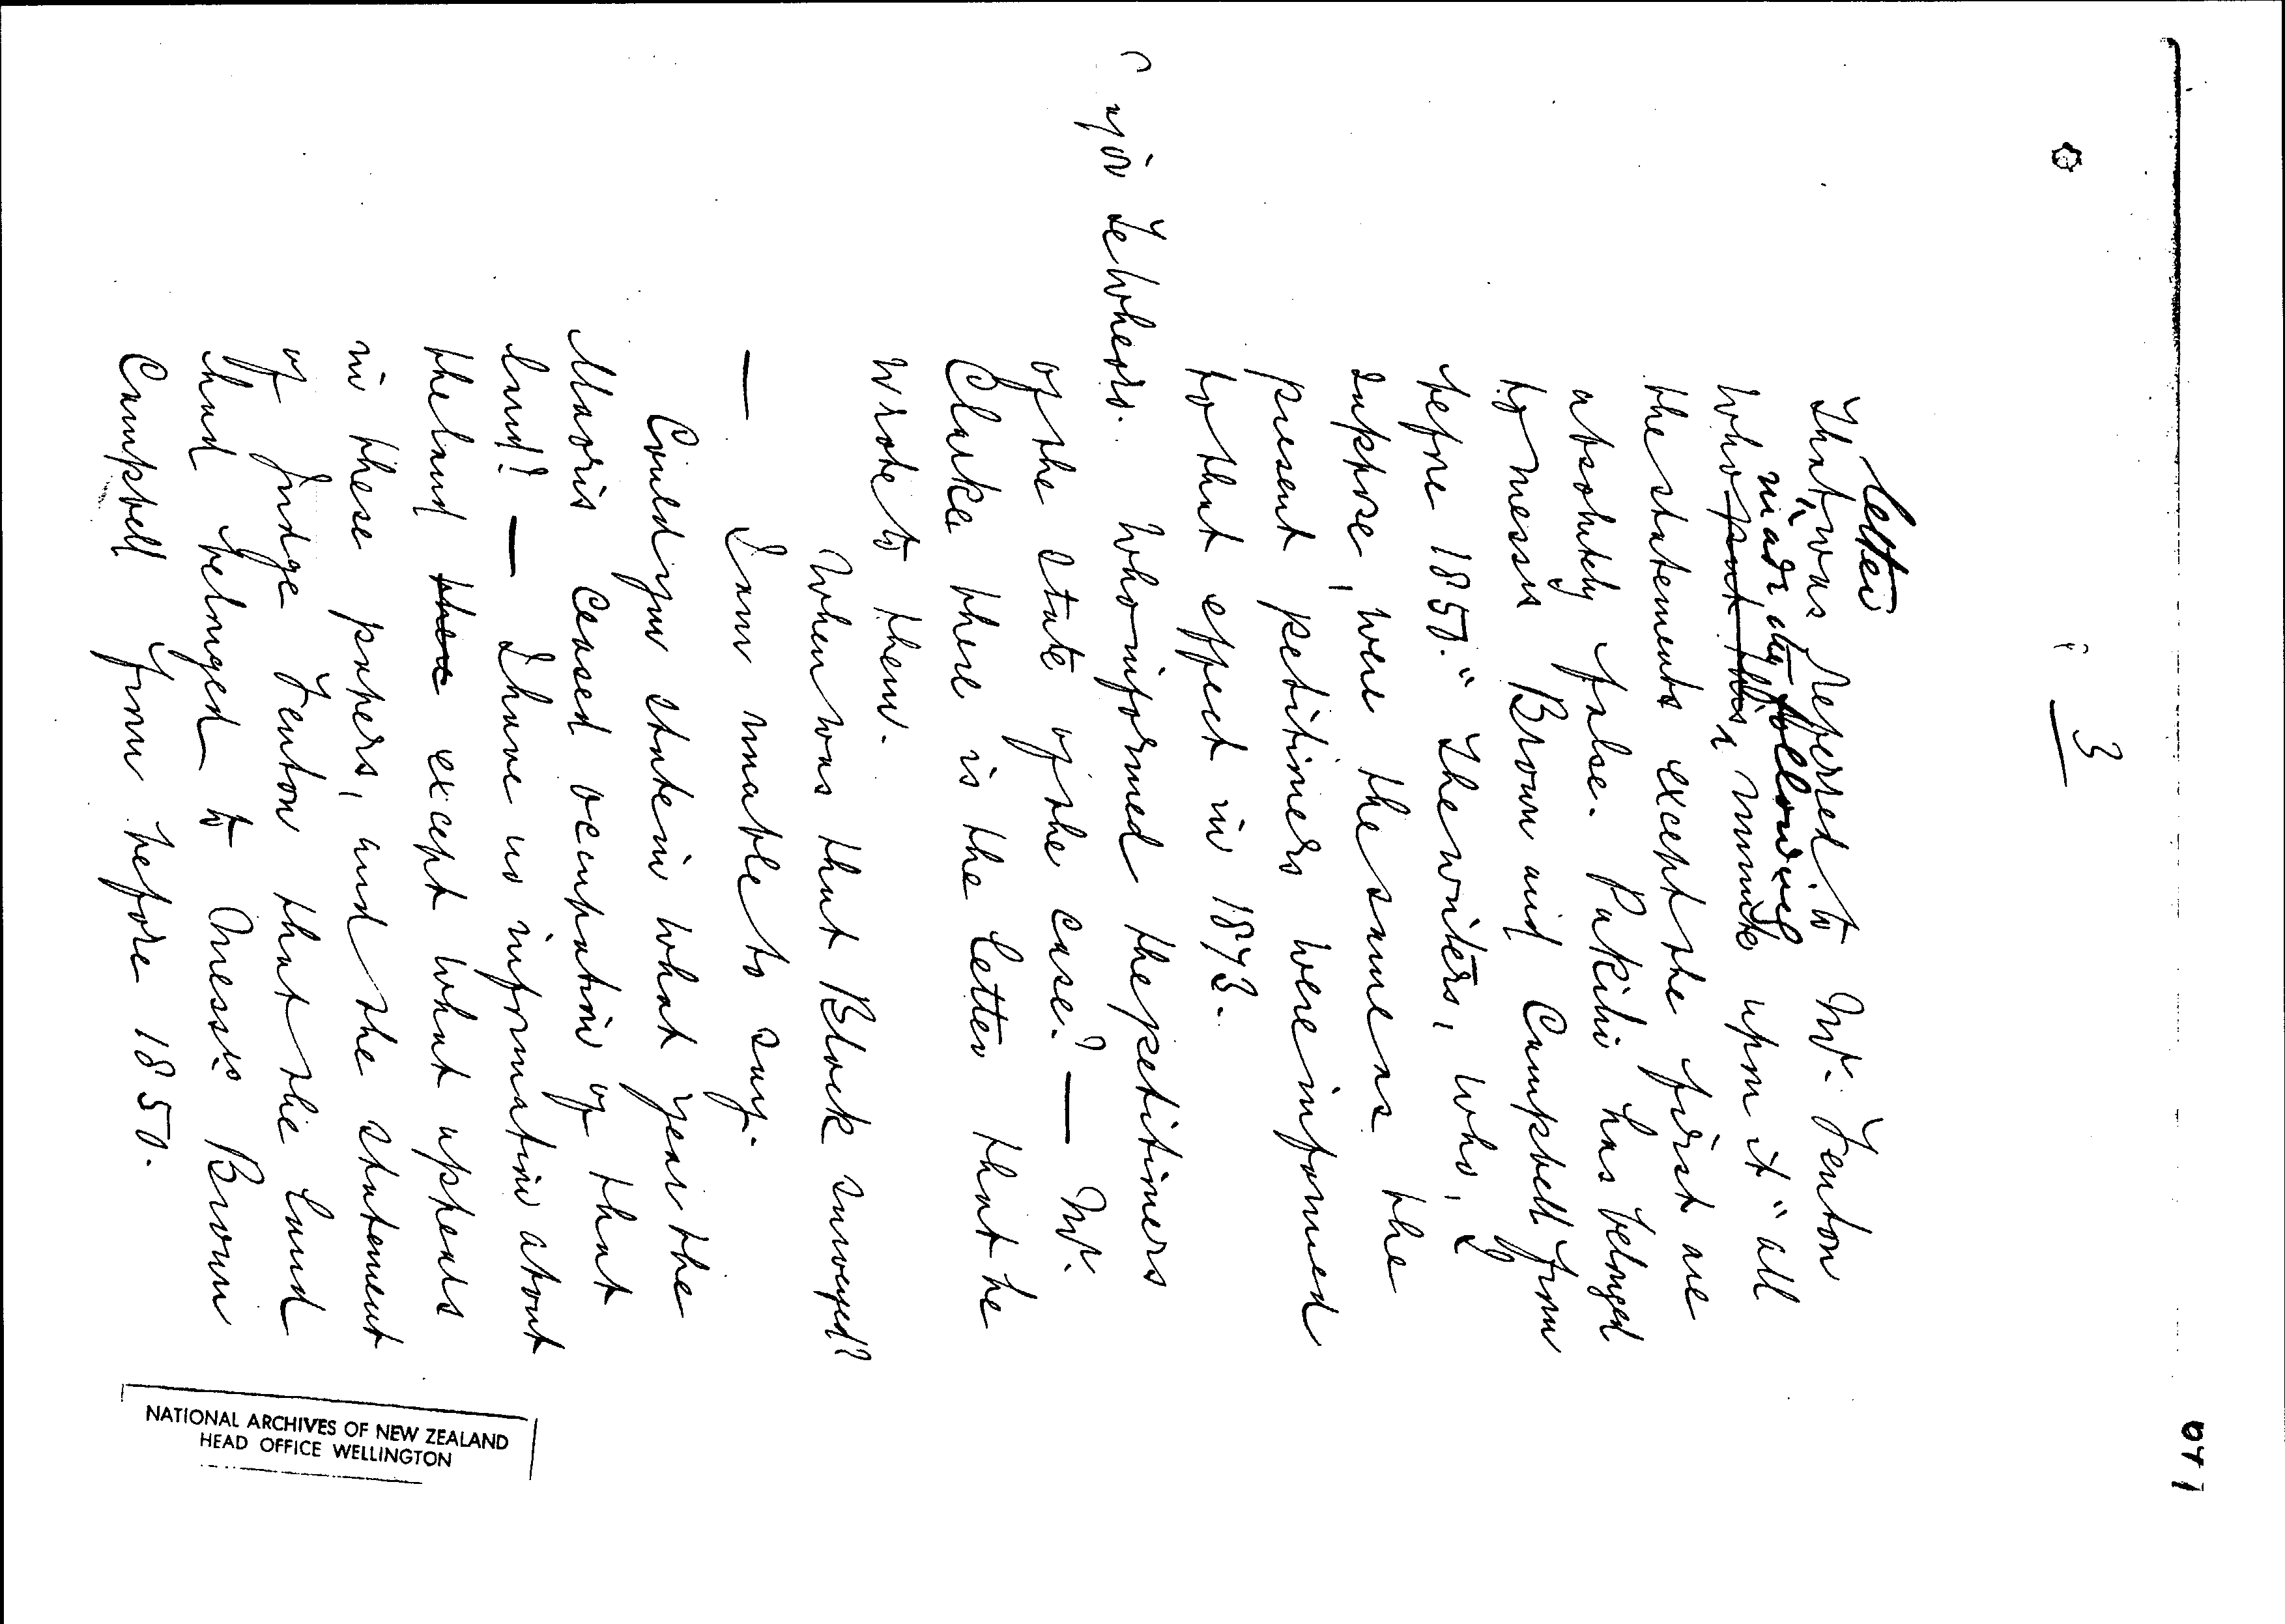 3
letter
That ^ was referred to Mr. Fenton
made the following
who ~~put this~~ ^ minute upon it "all
the statements except the first are
absolutely false. Pukihi has belonged
to messrs Brown and Campbell from
before 1850." The writers, who, I
suppose, were the same as the
present petitioners were informed
to that effect in 1873.
Major Te Wheoro. Who informed the petitioners
of the state of the case? — Mr.
Clarke there is the letter that he
wrote to them.
When was that Block surveyed?
— I am unable to say.
Could you state in what year the
Maoris ceased occupation of that
land? — I have no information about
the land ~~there~~ except what appears
in these papers, and the statement
of Judge Fenton that the land
had belonged to Messrs Brown
Campbell from before 1850.
NATIONAL ARCHIVES OF NEW ZEALAND
HEAD OFFICE WELLINGTON